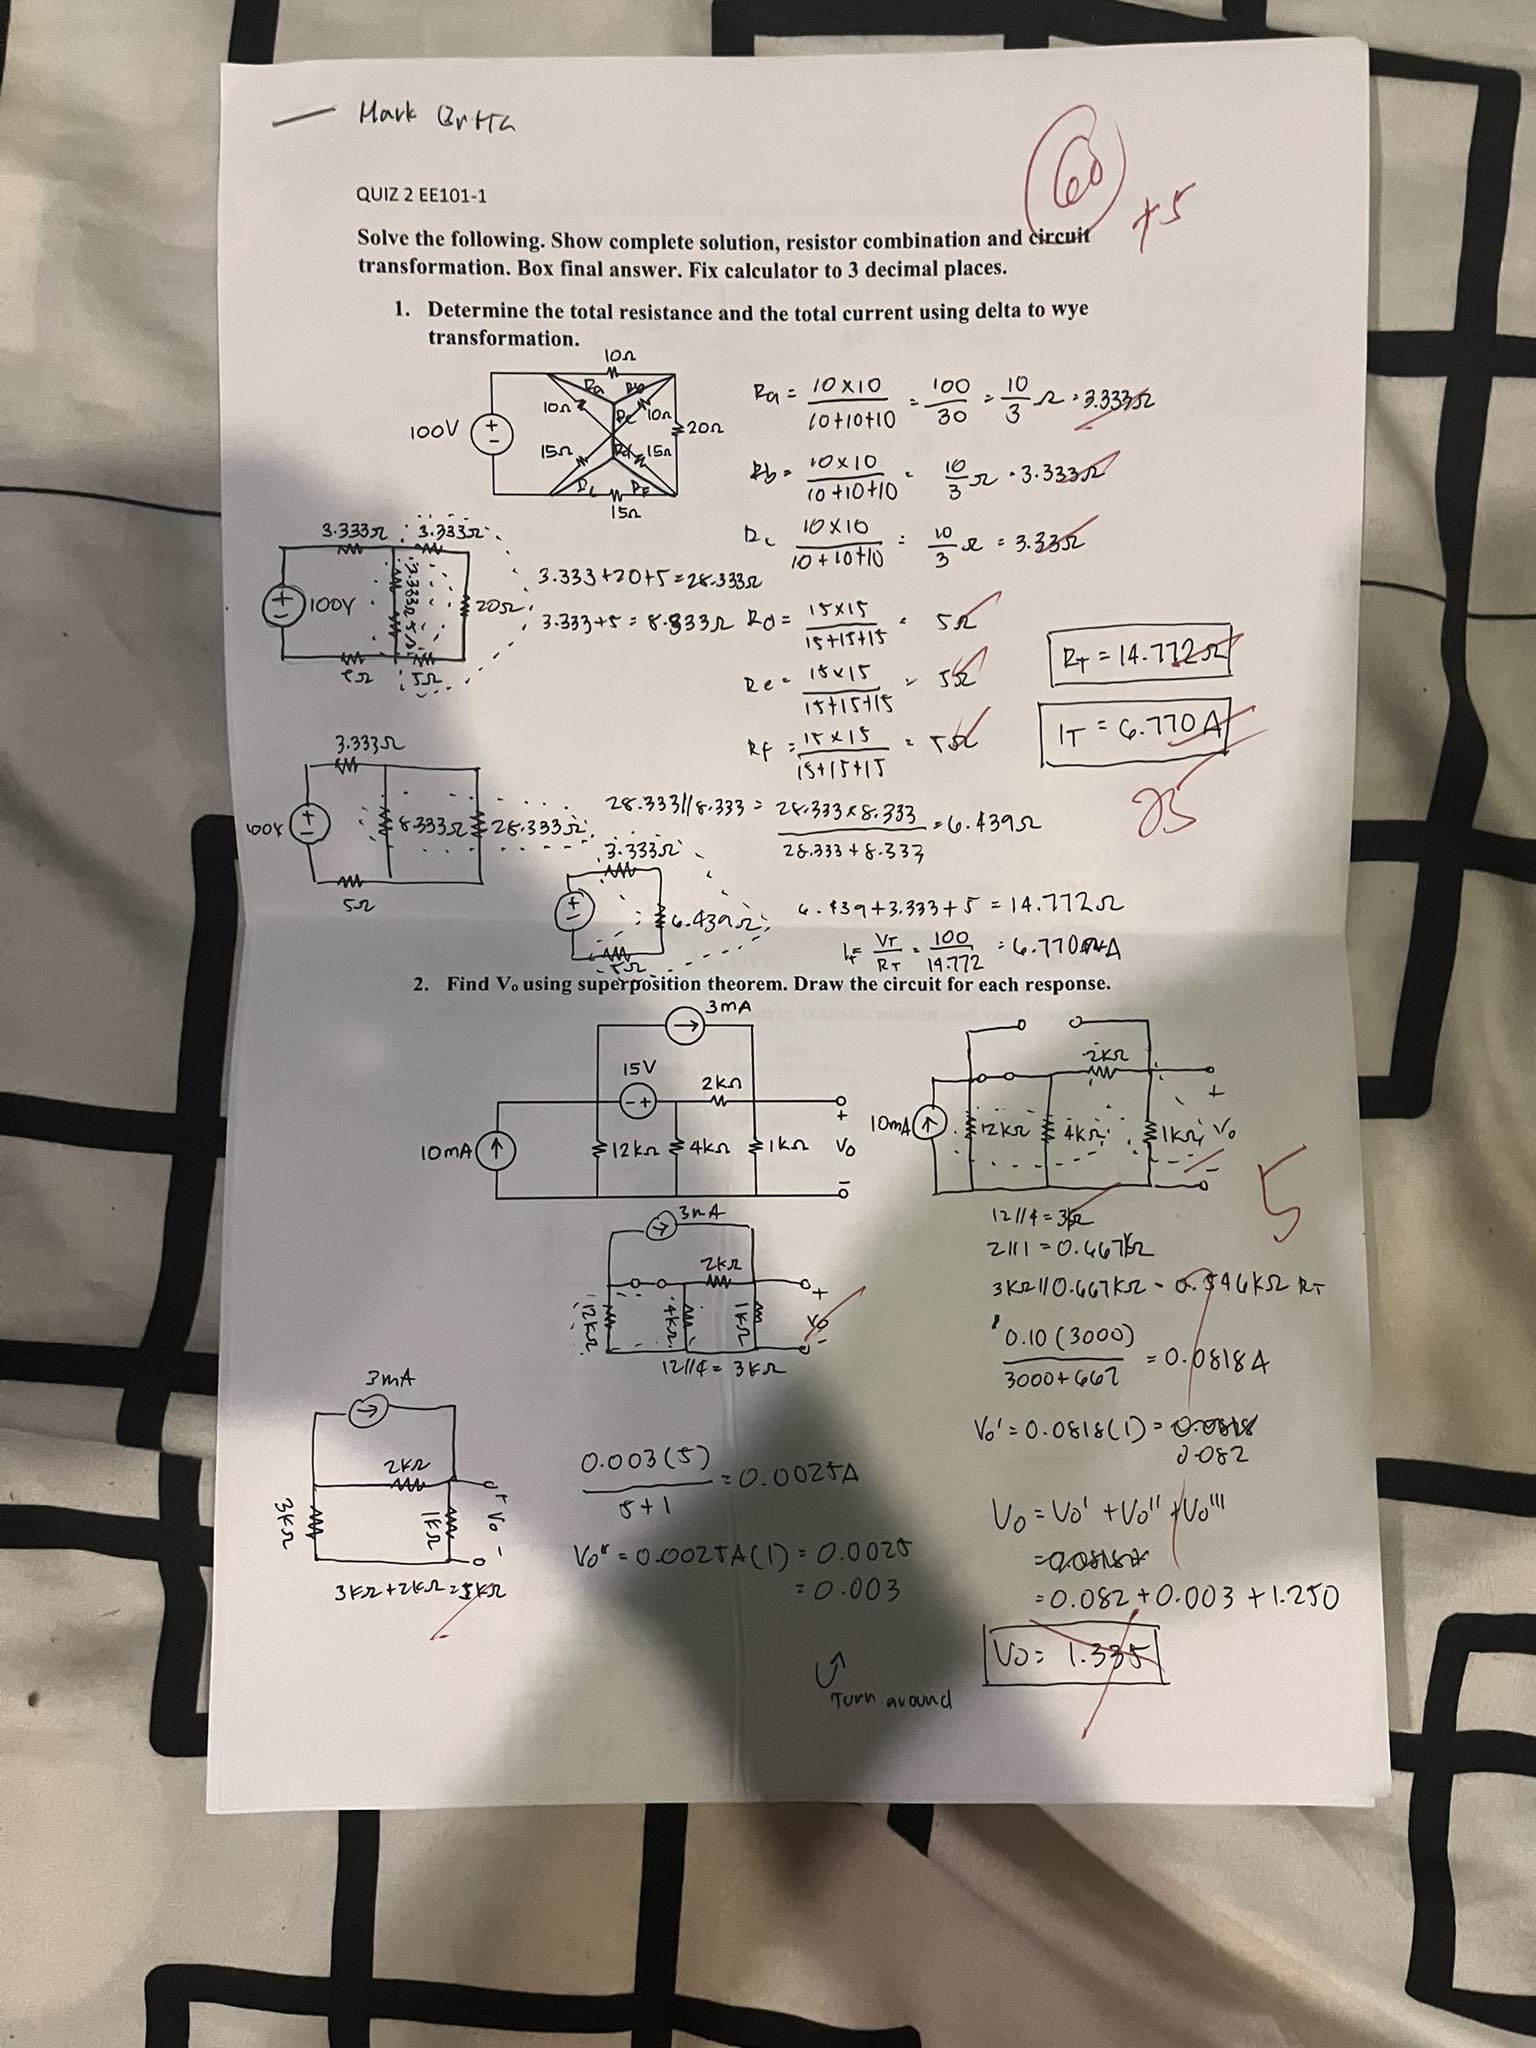 Mark
60
+5
QUIZ 2 EE101-1
Solve the following. Show complete solution, resistor combination and circuit
transformation. Box final answer. Fix calculator to 3 decimal places.
1. Determine the total resistance and the total current using delta to wye
transformation.
10Ω
Ra
10Ω
10Ω
Rc
100V
+
-
20Ω
15Ω
15Ω
15Ω
Ra = 10×10 / 10+10+10 = 100 / 30 = 10 / 3 Ω = 3.333Ω
Rb = 10×10 / 10+10+10 = 10 / 3 Ω = 3.333Ω
Rc 10×10 / 10+10+10 = 10 / 3 Ω = 3.33Ω
3.333Ω
3.333Ω
100V
3.333Ω
5Ω
20Ω
5Ω
5Ω
3.333+20+5=28.333Ω
3.333+5=8.333Ω
Rd = 15×15 / 15+15+15 = 5Ω
Re = 15×15 / 15+15+15 = 5Ω
Rf = 15×15 / 15+15+15 = 5Ω
RT = 14.772Ω
IT = 6.770A
25
3.333Ω
100V
8.333Ω
28.333Ω
5Ω
28.333//8.333 = 28.333×8.333 / 28.333+8.333 = 6.439Ω
3.333Ω
6.439Ω
5Ω
6.439+3.333+5 = 14.772Ω
IT = VT / RT = 100 / 14.772 = 6.770 A
2. Find Vo using superposition theorem. Draw the circuit for each response.
3mA
15V
- +
2kΩ
10mA
12kΩ
4kΩ
1kΩ
+
Vo
-
2kΩ
10mA
12kΩ
4kΩ
1kΩ
+
Vo
-
5
12//4=3kΩ
2//1=0.667kΩ
3kΩ//0.667kΩ = 0.546kΩ RT
0.10(3000) / 3000+667 = 0.0818A
Vo' = 0.0818(1) = 0.0818
0.082
3mA
2kΩ
12kΩ
4kΩ
1kΩ
+
Vo
-
12//4=3kΩ
3mA
2kΩ
3kΩ
1kΩ
+
Vo
-
3kΩ+2kΩ=5kΩ
0.003(5) / 5+1 = 0.0025A
Vo" = 0.0025A(1) = 0.0025
= 0.003
Vo = Vo' + Vo'' + Vo'''
= 0.082+0.003+1.250
Vo = 1.335
Turn around